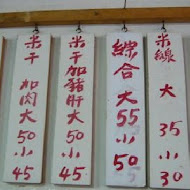 米干 加肉 大50 小45
米干加豬肝 大50 小45
綜合 大55 小50
米線 大35 小30